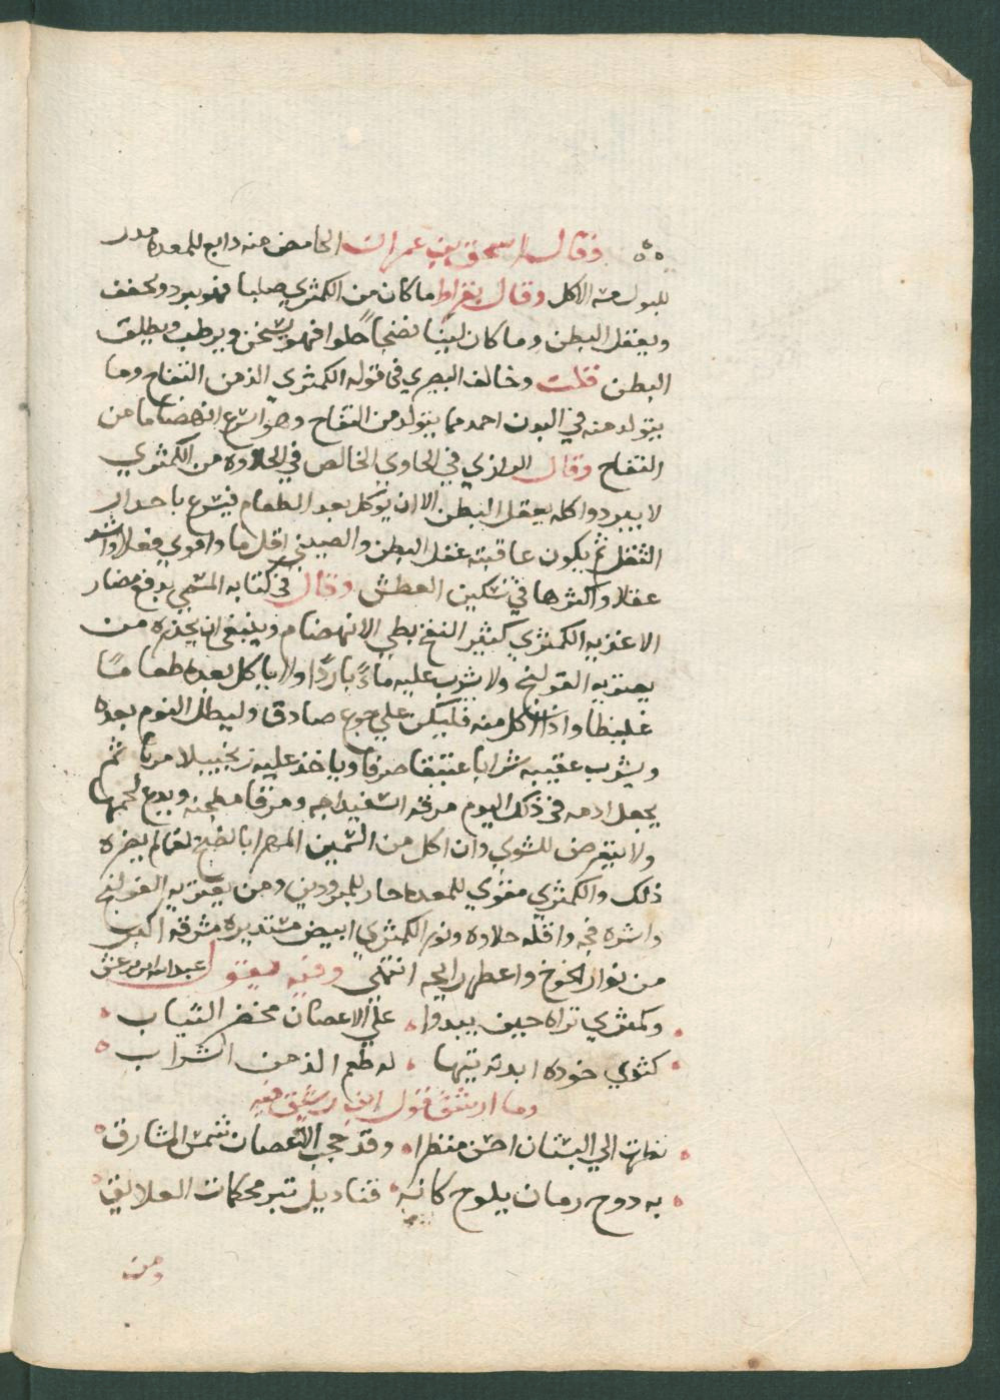 وقال اسحق بن عمران الحامض منه دابع للمعده مدر
للبول مشه الاكل وقال بقراط ما كان من الكمثري صلبا فهو يبرد ويجفف
ويعقل البطن وما كان لينا نضجا حلوا فهو يسخن ويرطب ويطلق
البطن قلت وخالف البصري في قوله الكمثري الذ من التفاح وما
يتولد منه في البدن احمد مما يتولد من التفاح وهو اسرع انهضاما من
التفاح وقال الرازي في الحاوي الخالص في الحلاوه من الكمثري
لا يبرد واكله يعقل البطن الا ان يوكل بعد الطعام فيسرع باحدار
الثفل ثم يكون عاقبته عقل البطن والصيني اقلها ما واقوي فعلا واشد
عقلا واكثرها في تسكين العطش وقال في كتابه المسمي بدفع مضار
الاغذيه الكمثري كثير النفخ بطي الانهضام وينبغي ان يحذره من
يعتريه القولنج ولا يشرب عليه ماءً باردًا ولا ياكل بعده طعامًا
غليظا واذا اكل منه فليكن علي جوع صادق وليطل النوم بعده
ويشرب عقيبه شرابا عتيقا صرفا وياخذ عليه زنجبيلا مربا ثم
يجعل ادمه في ذلك اليوم مرقه اسفيداجه ومرقا مطجنه ويدع لحمها
ولا يتعرض للشوي وان اكل من السمين المهرا بالطبخ لقما لم يضره
ذلك والكمثري مقوي للمعده ضار للمبرودين ومن يعتريه القولنج
واشره فجه واقله حلاوه ونور الكمثري ابيض مستديره مشرقه اكبر
من نوار الخوخ واعطر رايحه انتهي وفيه يقول عبد الله
وكمثري تراه حين يبدوا علي الاغصان مخضر الثياب
كثدي خوده ابدته تيها له طعم الذ من الشراب
وما ارشق قول ابن رشيق فيه
نظرت الي البستان احسن منظرا وقد حجب الاغصان شمس المشارق
به دوح رمان يلوح كانه قناديل تبر محكمات العلايق
ومن